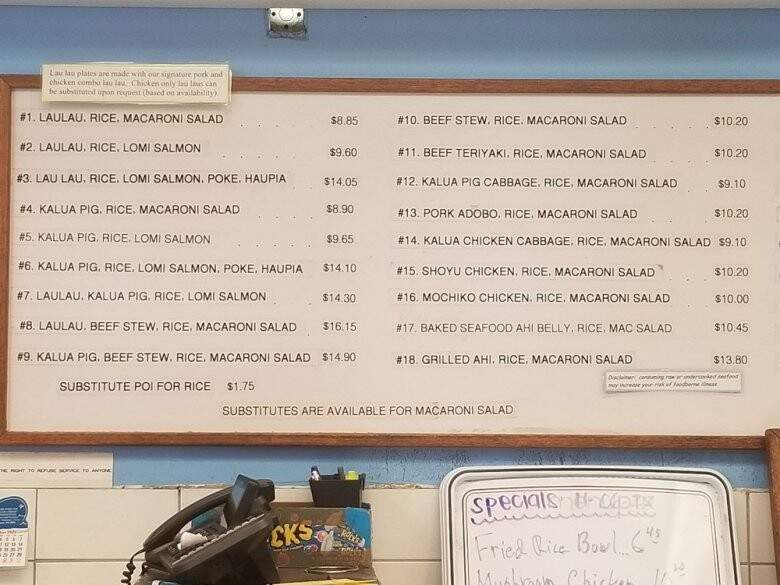 Lau lau plates are made with our signature pork and
chicken combo lau lau. Chicken only lau laus can
be substituted upon request (based on availability).
#1. LAULAU, RICE, MACARONI SALAD . . . . $8.85
#2. LAULAU, RICE, LOMI SALMON . . . . $9.60
#3. LAU LAU, RICE, LOMI SALMON, POKE, HAUPIA $14.05
#4. KALUA PIG, RICE, MACARONI SALAD . . . . $8.90
#5. KALUA PIG, RICE, LOMI SALMON . . . . $9.65
#6. KALUA PIG, RICE, LOMI SALMON, POKE, HAUPIA $14.10
#7. LAULAU, KALUA PIG, RICE, LOMI SALMON . . $14.30
#8. LAULAU, BEEF STEW, RICE, MACARONI SALAD $16.15
#9. KALUA PIG, BEEF STEW, RICE, MACARONI SALAD $14.90
SUBSTITUTE POI FOR RICE $1.75
#10. BEEF STEW, RICE, MACARONI SALAD . . . . $10.20
#11. BEEF TERIYAKI, RICE, MACARONI SALAD . . . $10.20
#12. KALUA PIG CABBAGE, RICE, MACARONI SALAD . $9.10
#13. PORK ADOBO, RICE, MACARONI SALAD . . . $10.20
#14. KALUA CHICKEN CABBAGE, RICE, MACARONI SALAD $9.10
#15. SHOYU CHICKEN, RICE, MACARONI SALAD . . $10.20
#16. MOCHIKO CHICKEN, RICE, MACARONI SALAD $10.00
#17. BAKED SEAFOOD AHI BELLY, RICE, MAC SALAD $10.45
#18. GRILLED AHI, RICE, MACARONI SALAD . . . $13.80
Disclaimer: consuming raw or undercooked seafood
may increase your risk of foodborne illness.
SUBSTITUTES ARE AVAILABLE FOR MACARONI SALAD
THE RIGHT TO REFUSE SERVICE TO ANYONE
CKS
specials
Fried Rice Bowl...6 45
Mushroom Chicken 10